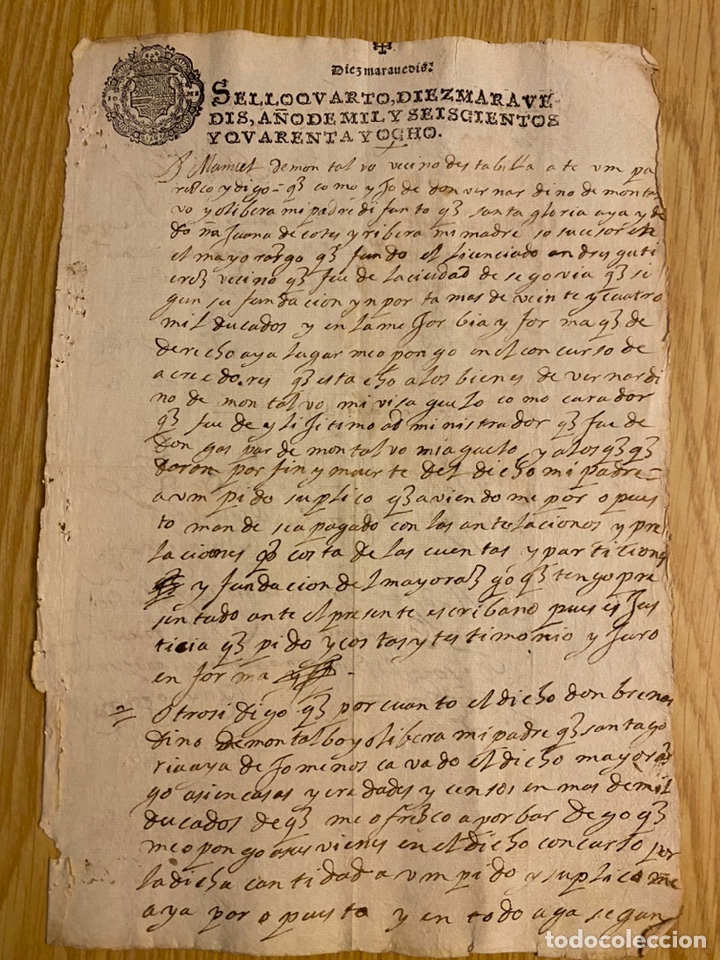 Diez maravedis.
SELLO QVARTO, DIEZ MARAVE
DIS, AÑO DE MIL Y SEISCIENTOS
Y QVARENTA Y OCHO.
Manuel de montalvo vecino desta billa ante vm pa
resco y digo = q̃ como yjo de don vernardino de montal
vo y olibera mi padre difunto q̃ santa gloria aya y de
doña Juana de cotes y ribera mi madre so sucesor en
el mayorasgo q̃ fundo el licenciado andres guti
erez vecino q̃ fue de la ciudad de segovia q̃ si
gun su fundacion ynporta mas de veinte y cuatro
mil ducados y en la mejor bia y forma q̃ de
derecho aya lugar me opongo en el concurso de
acreedores q̃ esta echo a los bienes de vernardi
no de montalvo mi visaguelo como curador
q̃ fue de y lijitimo administrador q̃ fue de
Don gaspar de montalvo mi aguelo y a los q̃ q̃
daron por fin y muerte del decho mi padre =
a vm pido suplico q̃ aviendome por opues
to mande sea pagado con las antelaciones y pre
laciones q̃ costa de las cuentas y particiones
y fundacion del mayorazgo q̃ tengo pre
sentado ante el presente escribano pues es jus
ticia q̃ pido y costas y testimonio y juro
en forma
Otrosi digo q̃ por cuanto el dicho don brenar
dino de montalbo y olibera mi padre q̃ santa glo
ria aya dejo menoscavado el dicho mayoras
go asi en casas y eredades y censos en mas de mil
ducados de q̃ me ofresco a probar digo q̃
me opongo a sus vienes en el dicho concurso por
la dicha cantidad a vm pido y suplico me
aya por opuesto y en todo aga segun
todocoleccion.net